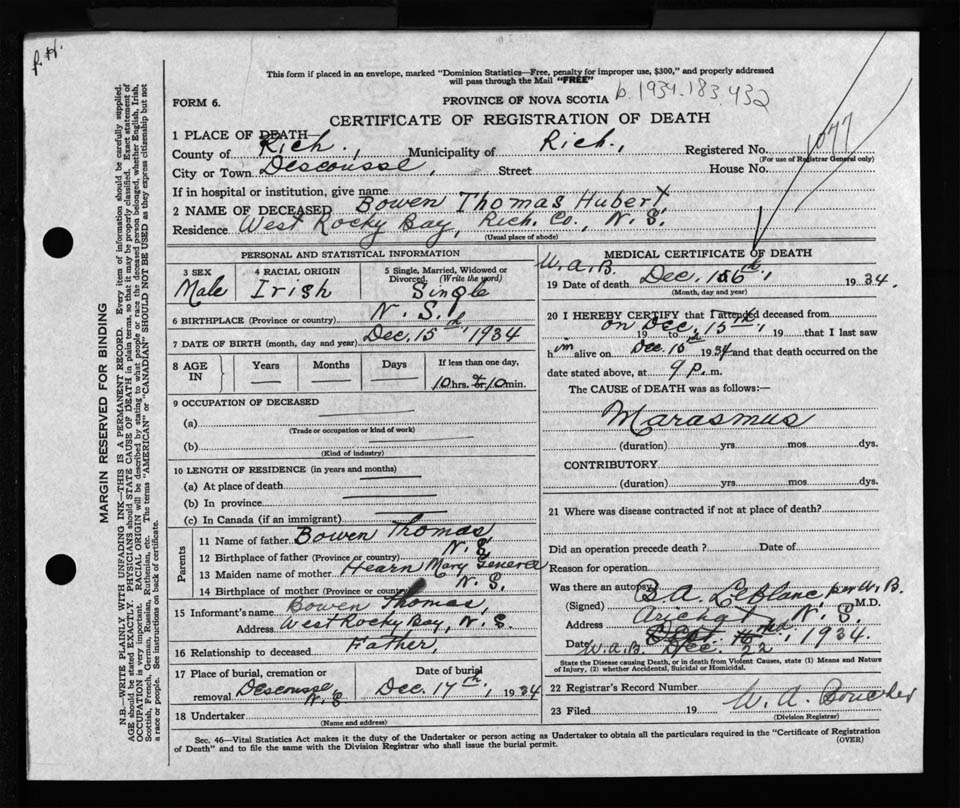 P. H.
This form if placed in an envelope, marked "Dominion Statistics—Free, penalty for improper use, $300," and properly addressed
will pass through the Mail "FREE"
b. 1934.183.432
FORM 6.
PROVINCE OF NOVA SCOTIA
CERTIFICATE OF REGISTRATION OF DEATH
1077
1 PLACE OF DEATH—
County of Rich., Municipality of Rich., Registered No.
(For use of Registrar General only)
City or Town Descousse, Street House No.
If in hospital or institution, give name
2 NAME OF DECEASED Bowen Thomas Hubert
Residence West Rocky Bay, Rich. Co., N. S.
(Usual place of abode)
PERSONAL AND STATISTICAL INFORMATION
3 SEX Male
4 RACIAL ORIGIN Irish
5 Single, Married, Widowed or
Divorced. (Write the word)
Single
6 BIRTHPLACE (Province or country) N. S.
7 DATE OF BIRTH (month, day and year) Dec. 15th, 1934
8 AGE IN
Years
Months
Days
If less than one day,
10 hrs. or 10 min.
9 OCCUPATION OF DECEASED
(a)
(Trade or occupation or kind of work)
(b)
(Kind of industry)
10 LENGTH OF RESIDENCE (in years and months)
(a) At place of death
(b) In province
(c) In Canada (if an immigrant)
Parents
11 Name of father Bowen Thomas
12 Birthplace of father (Province or country) N. S.
13 Maiden name of mother Hearn Mary Genera
14 Birthplace of mother (Province or country) N. S.
15 Informant's name Bowen Thomas,
Address West Rocky Bay, N. S.
16 Relationship to deceased Father,
17 Place of burial, cremation or
removal Descousse N. S.
Date of burial
Dec. 17th, 1934
18 Undertaker
(Name and address)
MEDICAL CERTIFICATE OF DEATH
W. a. B.
19 Date of death Dec. 16th, 1934.
(Month, day and year)
20 I HEREBY CERTIFY that I attended deceased from
on Dec. 15th, 19 to 19 that I last saw
him alive on Dec. 15th 1934 and that death occurred on the
date stated above, at 9 p. m.
The CAUSE of DEATH was as follows:—
Marasmus
(duration) yrs. mos. dys.
CONTRIBUTORY
(duration) yrs. mos. dys.
21 Where was disease contracted if not at place of death?
Did an operation precede death? Date of
Reason for operation
Was there an autopsy
(Signed) B. A. LeBlanc per W. B. M.D.
Address Arichat N. S.
Date Dec. 22nd, 1934.
W. a. B.
State the Disease causing Death, or in death from Violent Causes, state (1) Means and Nature
of Injury, (2) whether Accidental, Suicidal or Homicidal.
22 Registrar's Record Number
23 Filed 19 W. A. Boucher
(Division Registrar)
Sec. 46—Vital Statistics Act makes it the duty of the Undertaker or person acting as Undertaker to obtain all the particulars required in the "Certificate of Registration
of Death" and to file the same with the Division Registrar who shall issue the burial permit.
(OVER)
MARGIN RESERVED FOR BINDING
N.B.—WRITE PLAINLY WITH UNFADING INK—THIS IS A PERMANENT RECORD. Every item of information should be carefully supplied.
AGE should be stated EXACTLY. PHYSICIANS should STATE CAUSE OF DEATH in plain terms, so that it may be properly classified. Exact statement of
OCCUPATION is very important. RACIAL ORIGIN will be described by stating to what people or race the deceased person belonged, whether English, Irish,
Scottish, French, German, Russian, Ruthenian, etc. The terms "AMERICAN" or "CANADIAN" SHOULD NOT BE USED as they express citizenship but not
a race or people. See instructions on back of certificate.